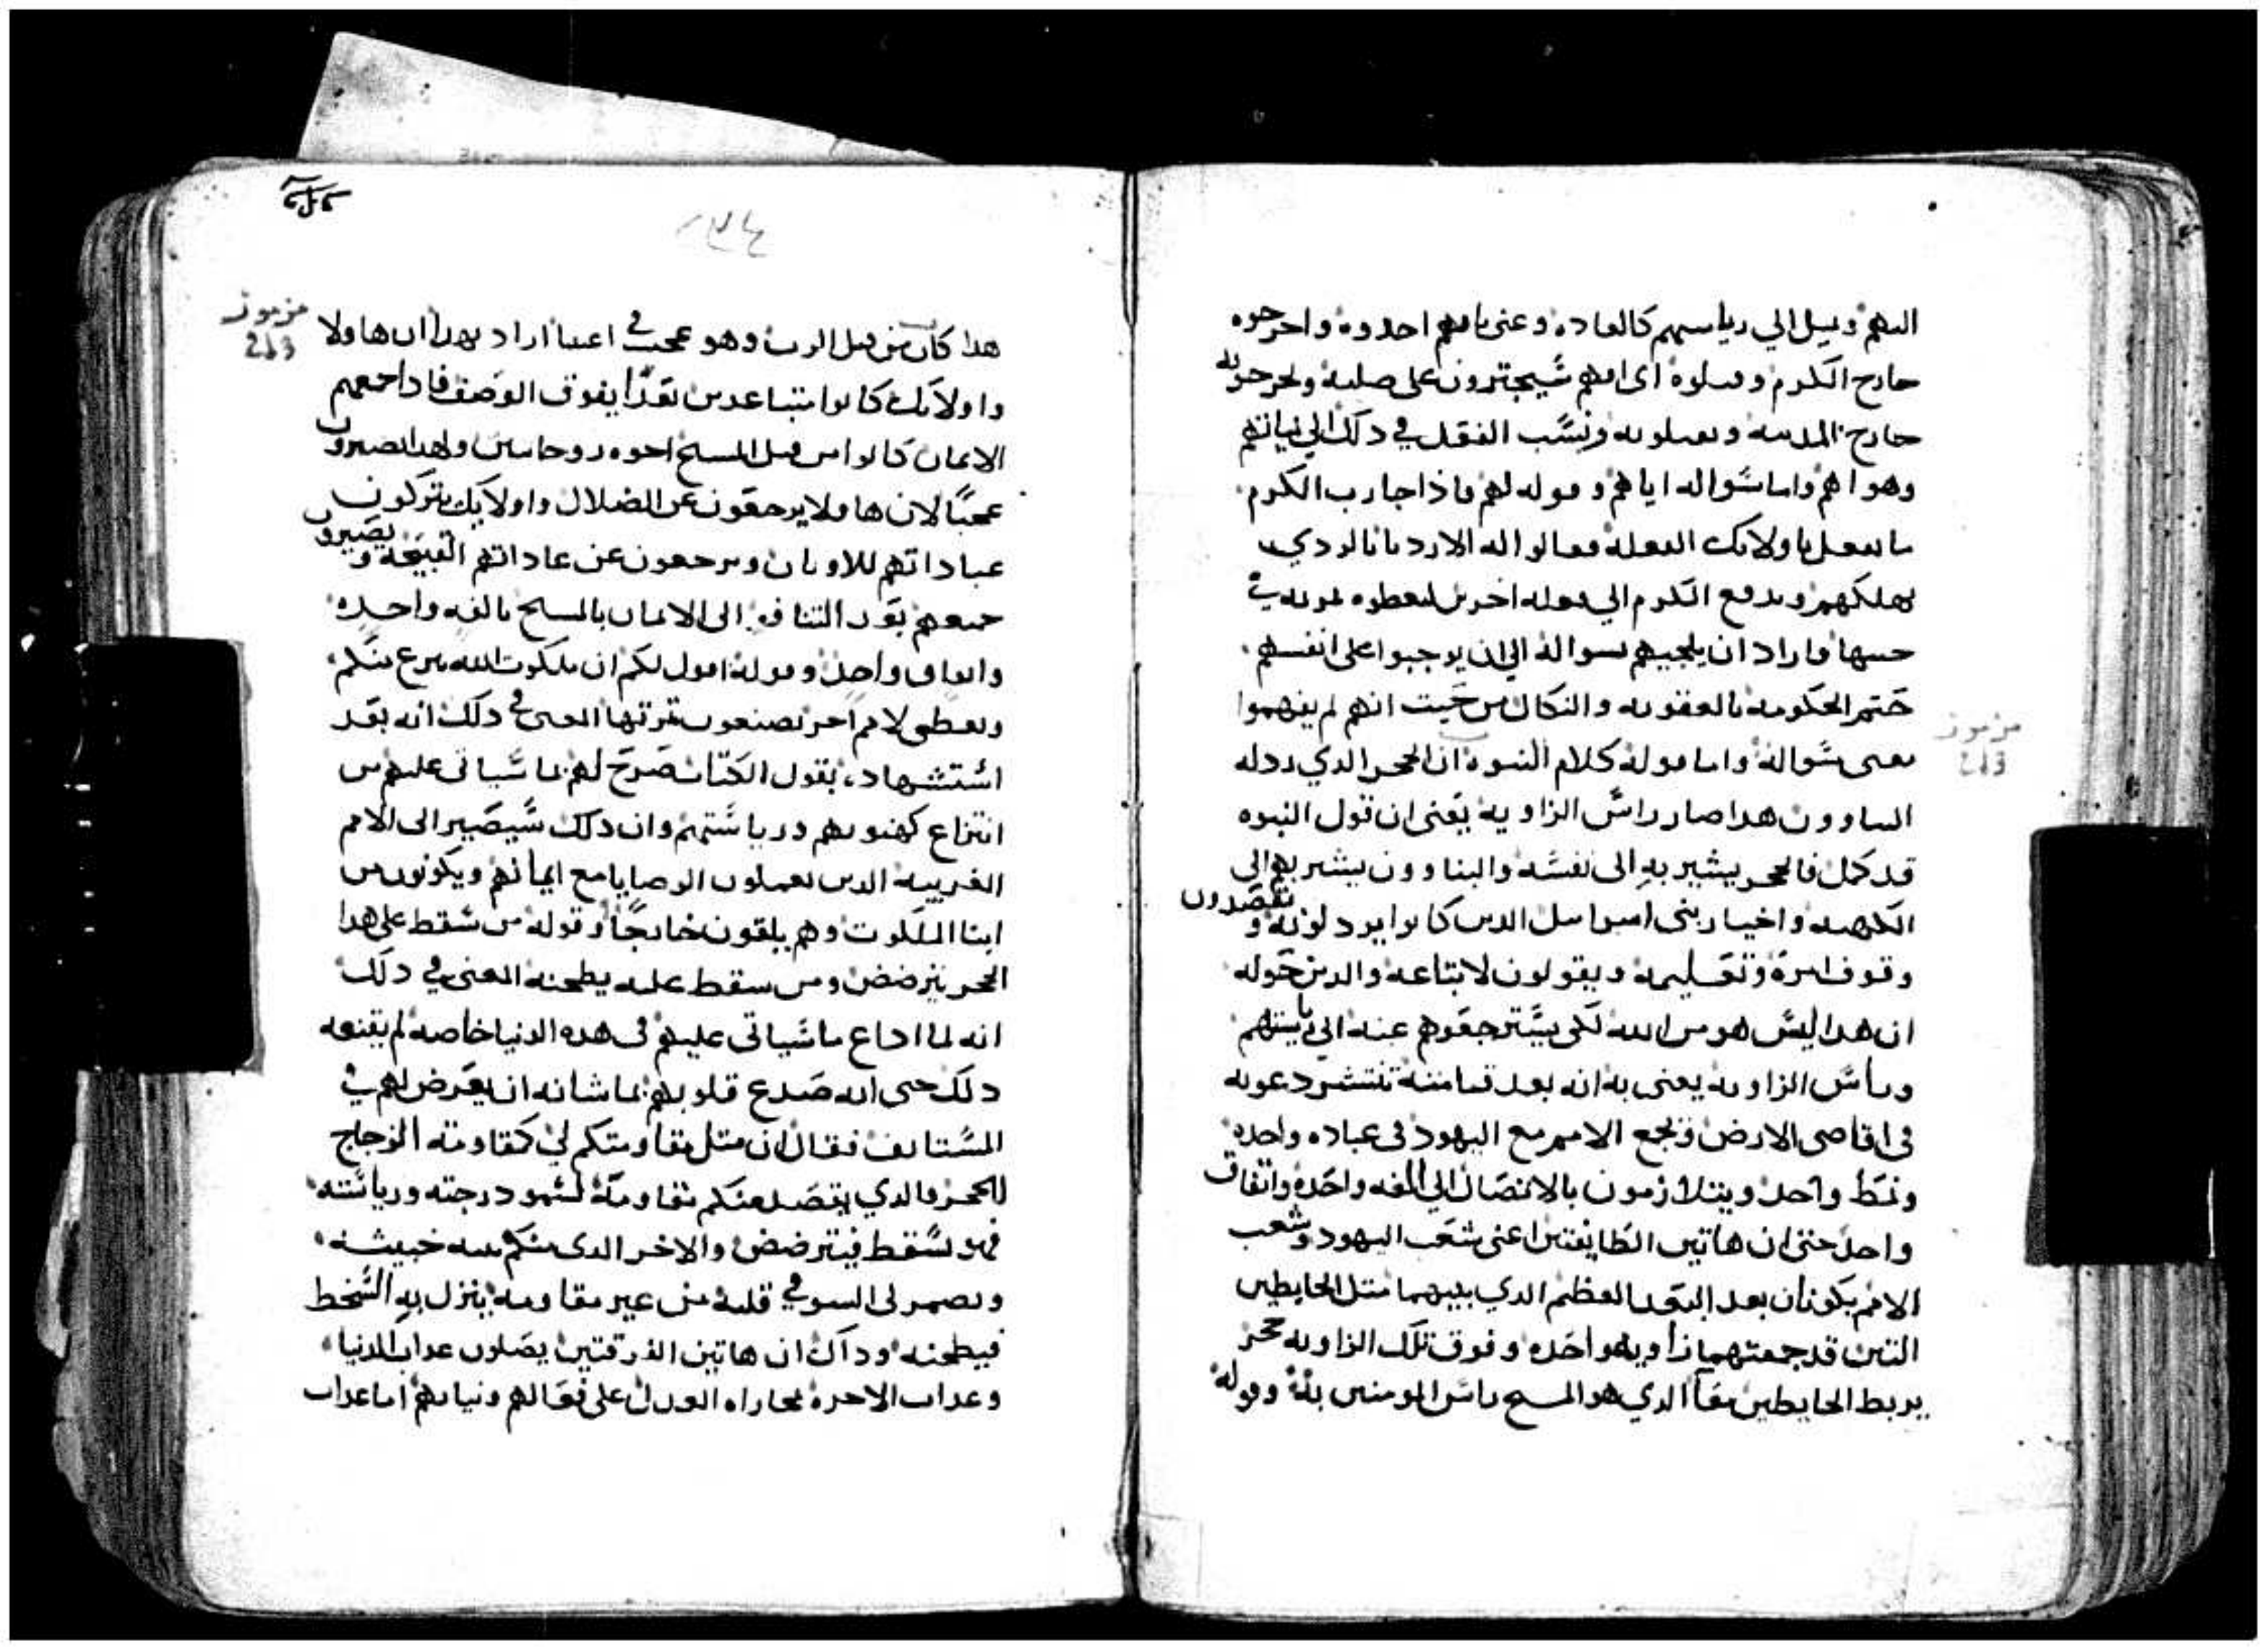 اليهم ويسل الي رياستهم كالعاده وعني بانهم اخدوه واخرجوه
خارج الكرم وقتلوه اي انهم سيجترون على صلبه ويخرجونه
خارج المدينه ويقتلونه ونسب الفعل في دلك الي نياتهم
وهواهم واما سواله اياهم وقوله لهم ماذا جا رب الكرم
ما يفعل باولايك الفعله فقالوا له الارديا بالردي
يهلكهم ويدفع الكرم الي فعله اخرين ليعطوه ثمرته في
حينها فاراد ان يلجيهم بسواله الي ان يوجبوا على انفسهم
ختم الحكومه بالعقوبه والنكال من حيت انهم لم يفهموا
معنى سواله واما قوله كلام النبوه ان الحجر الدي ردله
البناوون هدا صار راس الزاويه يعنى ان قول النبوه
قد كمل فالحجر يشير به الى نفسه والبناوون يشير بهم الى
الكهنه واخيار بني اسراييل الدين كانوا يردلونه ويقصدون
وقوف امره وتعليمه ويقولون لاتباعه والدين حوله
ان هدا ليس هو من الله لكى يسترجعوهم عنه الي ياستهم
وراس الزاويه يعنى به انه بعد قيامته تنتشر دعوته
في اقاصى الارض وتجمع الامم مع اليهود فى عباده واحده
ونمط واحد ويتلازمون بالاتصال الي الفه واحده واتفاق
واحد حتى ان هاتين الطايفتين اعنى شعب اليهود وشعب
الامم يكونان بعد البعد العظيم الدي بينهما متل الحايطين
التين قد جمعتهما زاويه واحده وفوق تلك الزاويه حجر
يربط الحايطين معا الدي هو المسيح راس المومنين به وقوله
مزمور
هدا كان من قبل الرب وهو عجب في اعيننا اراد بهدا ان هاولا
واولايك كانوا متباعدين بعدا يفوق الوصف فاد اجمعهم
الايمان كانوا من قبل المسيح اخوه روحانيين ولهدا يصيرون
عجبا لان هاولا يرجعون عن الضلال واولايك يتركون
عباداتهم للاوتان ويرجعون عن عاداتهم القبيحه ويصيرون
جميعهم بعد التنافر الى الايمان بالمسيح بالفه واحده
واتفاق واحد وقوله اقول لكم ان ملكوت الله ينزع منكم
ويعطى لامم اخر يصنعون ثمرتها المعنى في دلك انه بعد
استشهاده بقول الكتاب صرح لهم بما سياتى عليهم من
انتزاع كهنوتهم ورياستهم وان دلك سيصير الى الامم
الغريبه الدين يعملون الوصايا مع ايمانهم ويكونون من
ابنا الملكوت وهم يلقون خارجا وقوله من سقط على هدا
الحجر يترضض ومن سقط عليه يطحنه المعنى في دلك
انه لما اداع ما سياتى عليهم فى هده الدنيا خاصه لم يقنعه
دلك حتى انه صدع قلوبهم بما شانه ان يعرض لهم في
المستانف فقال ان متل مقاومتكم لي كمقاومة الزجاج
للحجر فالدي يقصد منكم مقاومة لسمو درجته ورياسته
فهو يسقط فيترضض والاخر الدى منكم نيته خبيثه
ويضمر لى السو في قلبه من غير مقاومه ينزل به السخط
فيطحنه وداك ان هاتين الفرقتين يصلون عداب الدنيا
وعداب الاخره بمجازاه العدل على فعالهم ونياتهم اما عداب
مزمور